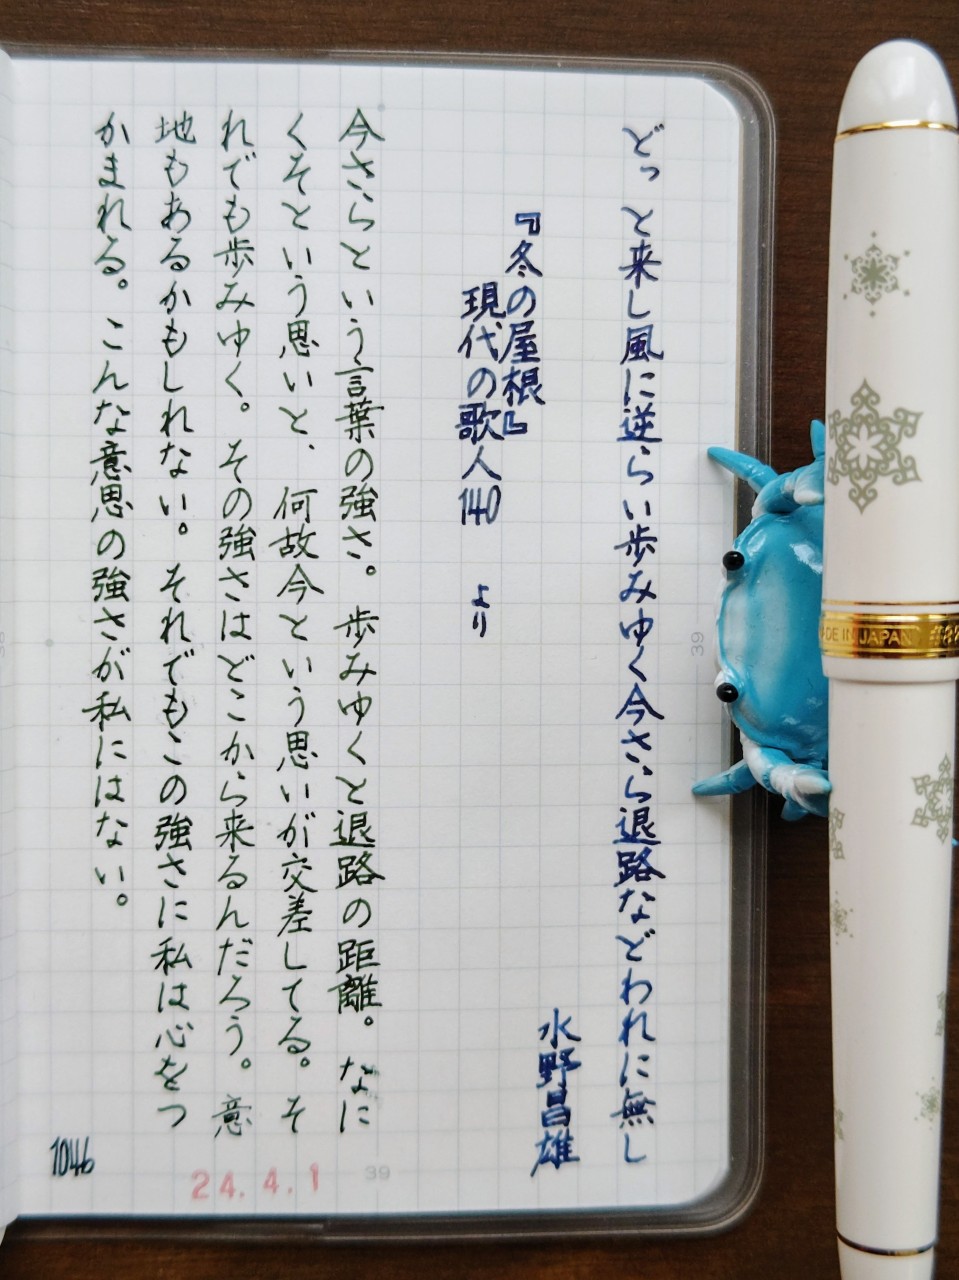 どっと来し風に逆らい歩みゆく今さら退路などわれに無し
水野昌雄
『冬の屋根』
現代の歌人140 より
今さらという言葉の強さ。歩みゆくと退路の距離。なに
くそという思いと、何故今という思いが交差してる。そ
れでも歩みゆく。その強さはどこから来るんだろう。意
地もあるかもしれない。それでもこの強さに私は心をつ
かまれる。こんな意思の強さが私にはない。
1046
24.4.1
39
39
DE IN JAPAN